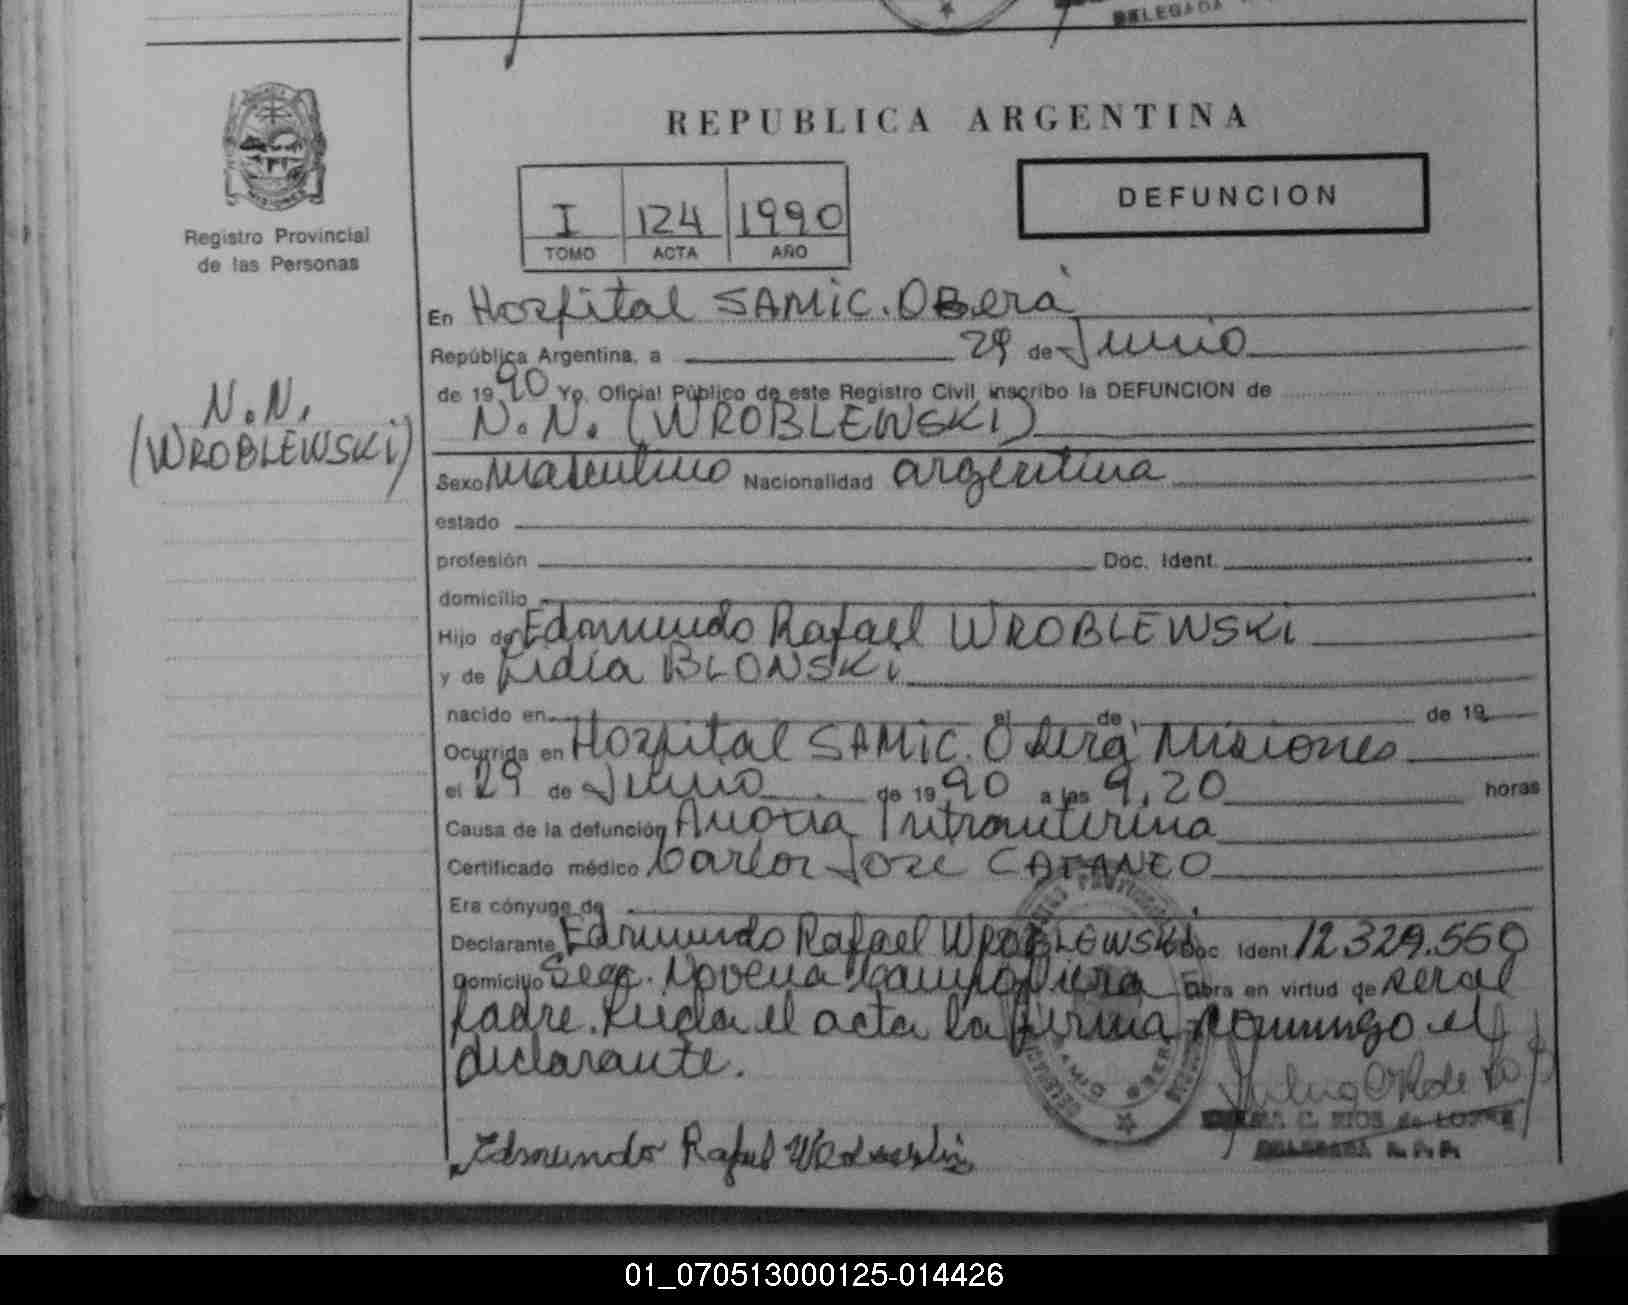 DELEGADA
REPUBLICA ARGENTINA
I 124 1990
TOMO ACTA AÑO
DEFUNCION
Registro Provincial
de las Personas
N.N.
(WROBLEWSKI)
En Hospital SAMIC. OBerá
República Argentina, a 29 de Junio
de 1990 Yo, Oficial Público de este Registro Civil, inscribo la DEFUNCION de
N.N. (WROBLEWSKI)
Sexo Masculino Nacionalidad argentina
estado
profesión Doc. Ident.
domicilio
Hijo de Edmundo Rafael WROBLEWSKI
y de Lidia BLONSKI
nacido en el de de 19
Ocurrida en Hospital SAMIC. Oberá Misiones
el 29 de Junio de 1990 a las 9,20 horas
Causa de la defunción Anoxia Intrauterina
Certificado médico Carlos Jose CATANEO
Era cónyuge de
Declarante Edmundo Rafael WROBLEWSKI Doc. Ident. 12.329.550
Domicilio Secc. Novena Campo Viera Obra en virtud de ser el
padre. Leida el acta la firma el
declarante.
Edmundo Rafael
C. RIOS de
DELEGADA R.P.P.
01_070513000125-014426